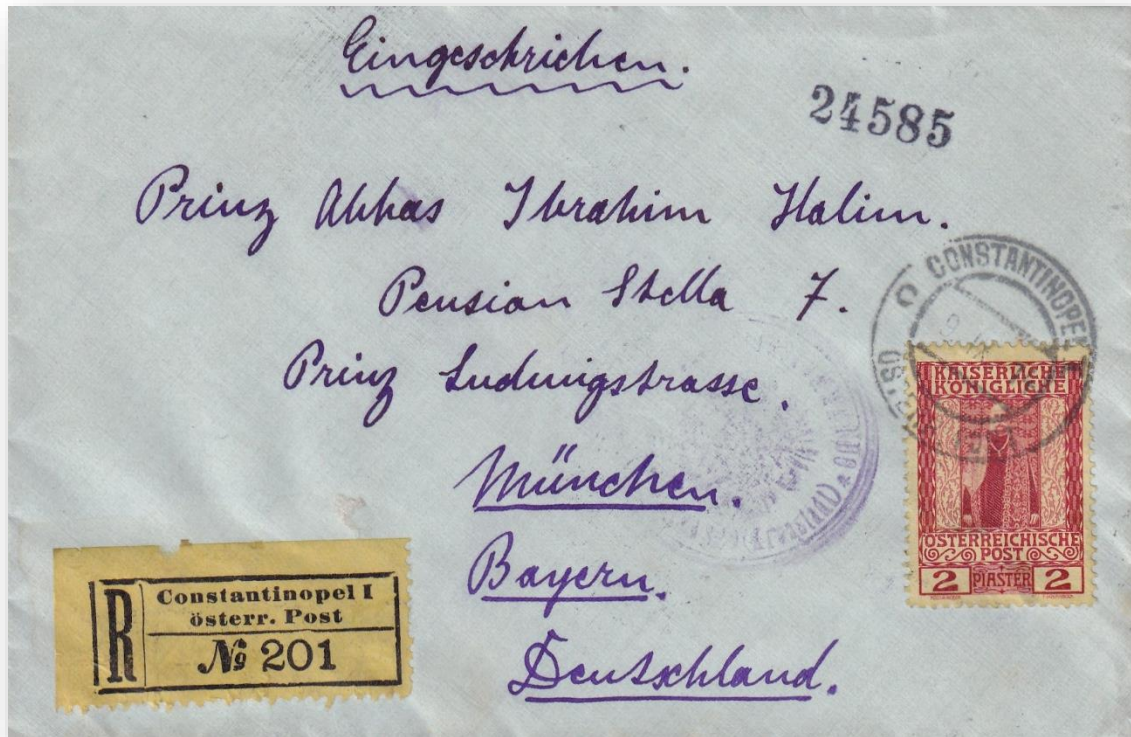 Eingeschrieben.
24585
Prinz Abbas Ibrahim Halim.
Pension Stella 7.
Prinz Ludwigstrasse.
München.
Bayern.
Deutschland.
CONSTANTINOPEL
KAISERLICHE
KÖNIGLICHE
ÖSTERREICHISCHE
POST
2 PIASTER 2
R
Constantinopel I
österr. Post
№ 201